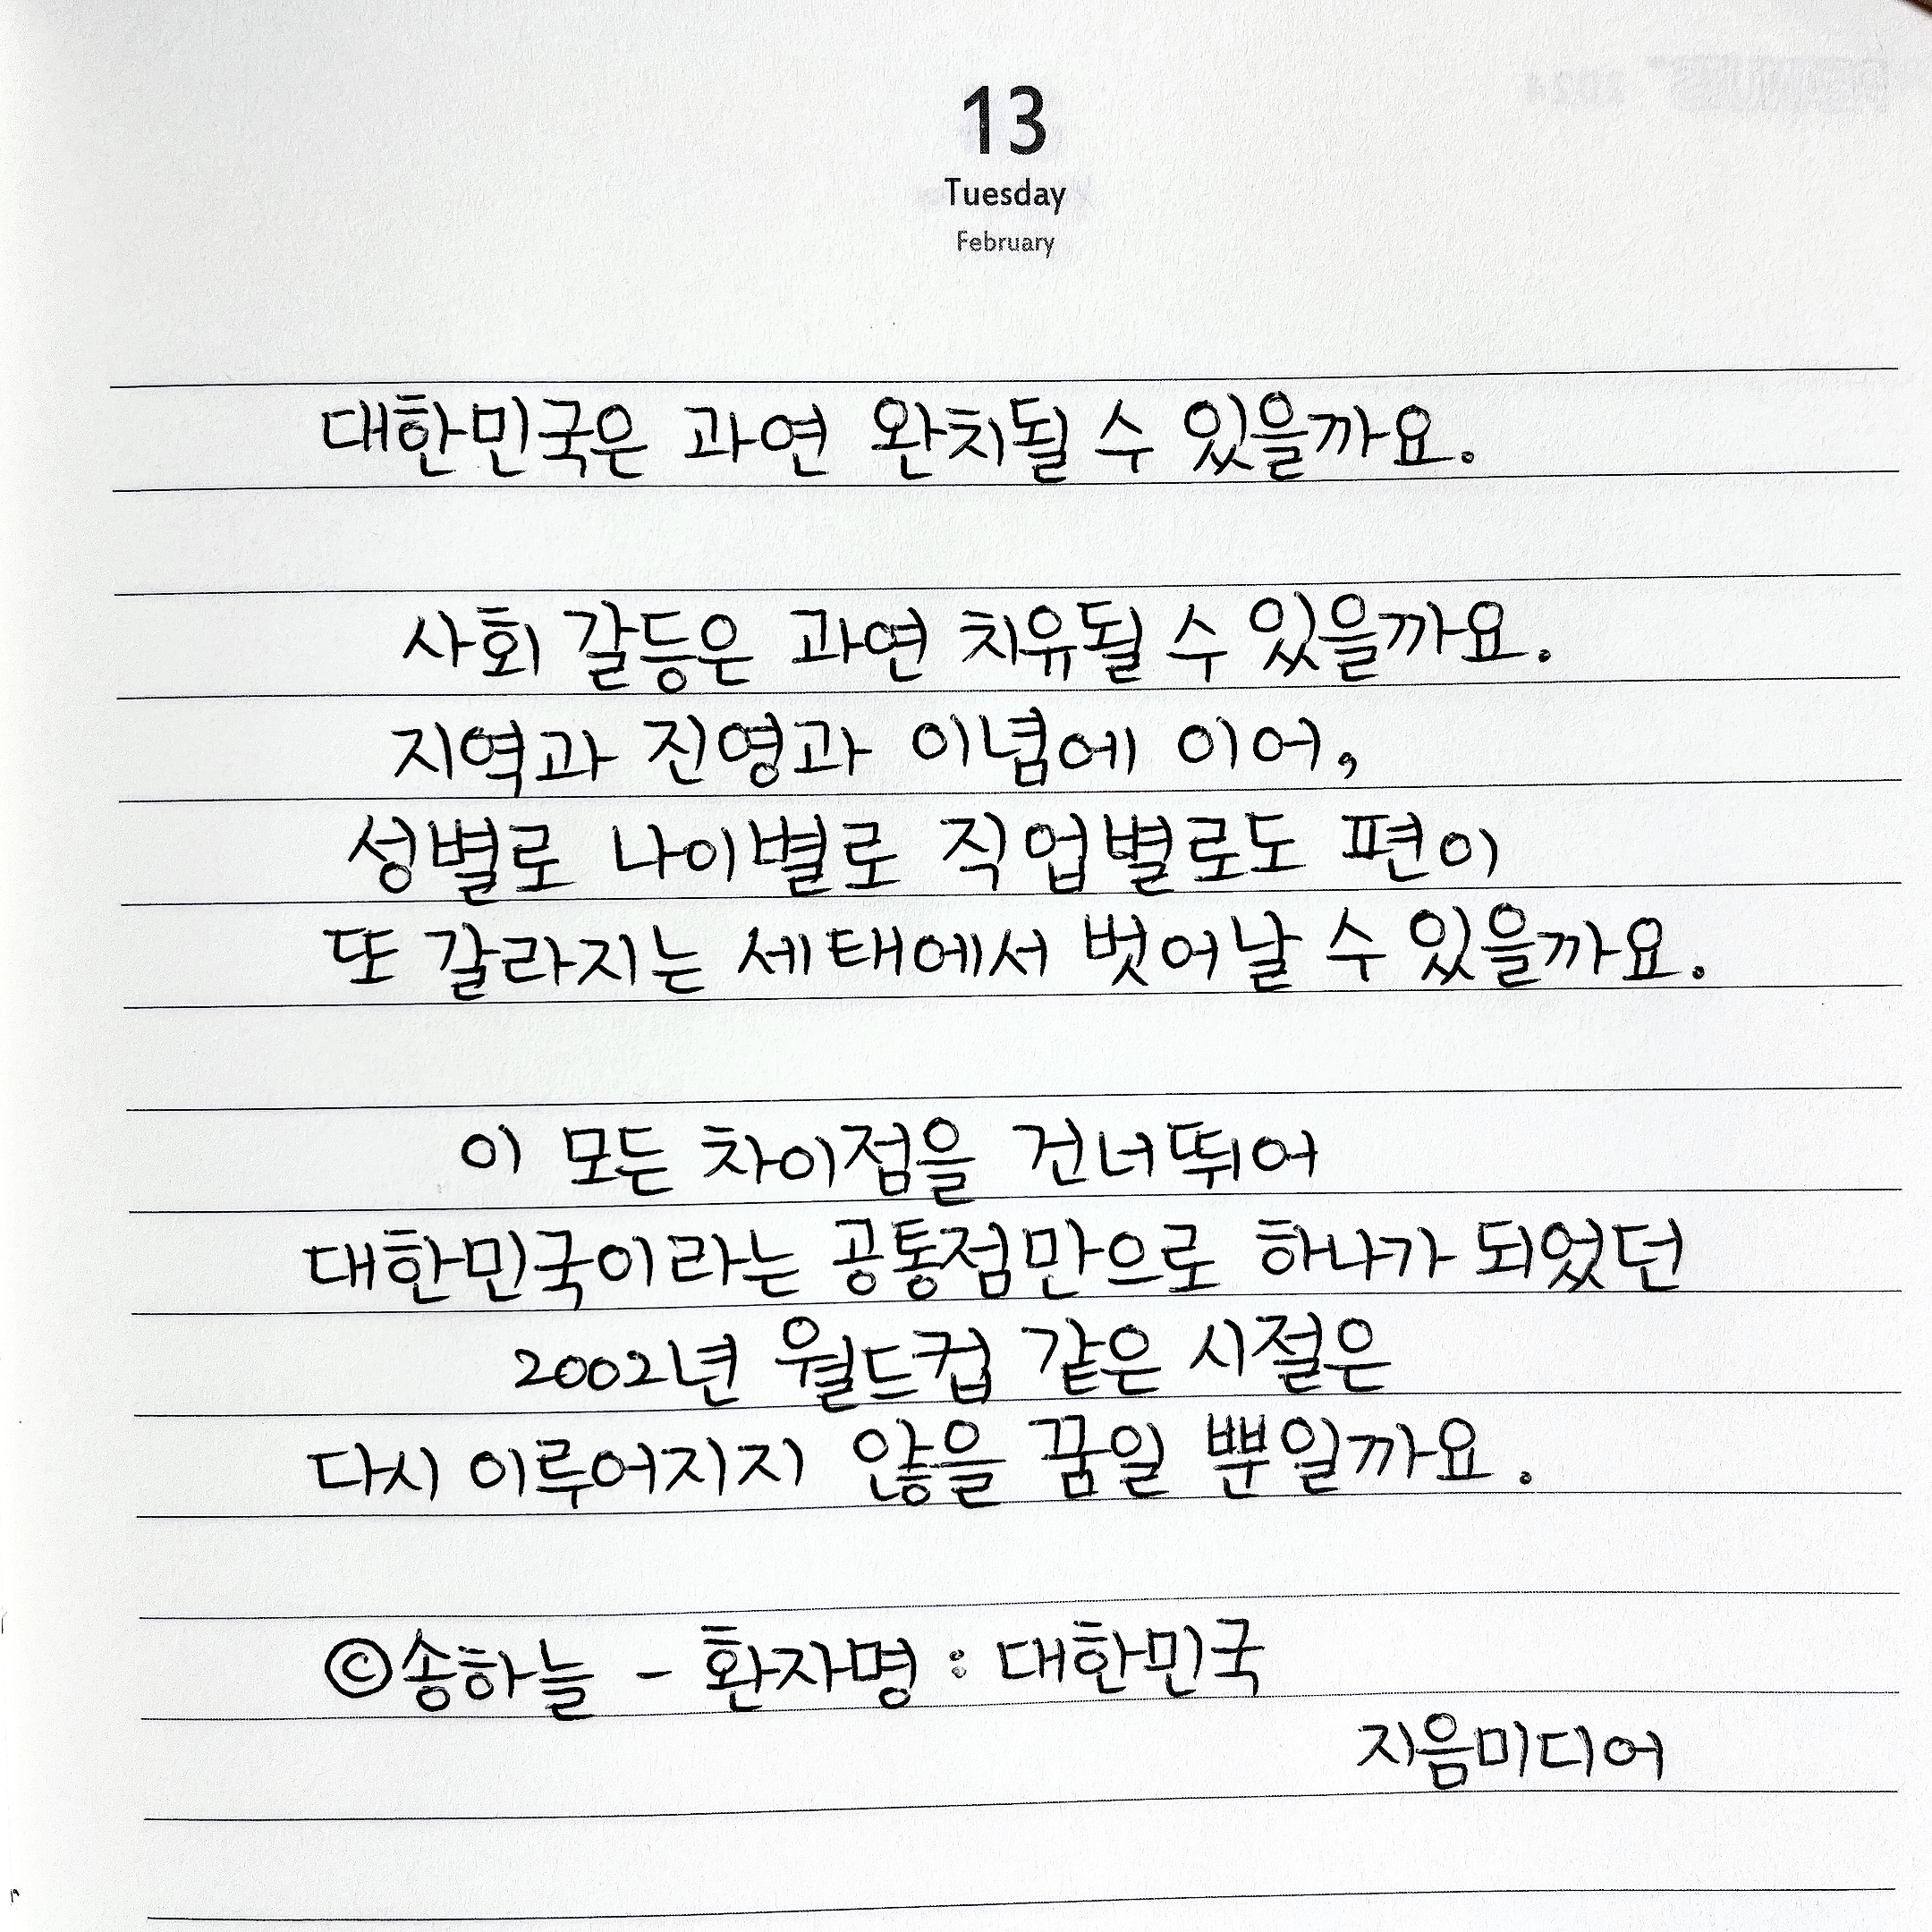 13
Tuesday
February
대한민국은 과연 완치될 수 있을까요.
사회 갈등은 과연 치유될 수 있을까요.
지역과 진영과 이념에 이어,
성별로 나이별로 직업별로도 편이
또 갈라지는 세태에서 벗어날 수 있을까요.
이 모든 차이점을 건너뛰어
대한민국이라는 공통점만으로 하나가 되었던
2002년 월드컵 같은 시절은
다시 이루어지지 않을 꿈일 뿐일까요.
©송하늘 - 환자명 : 대한민국
지음미디어